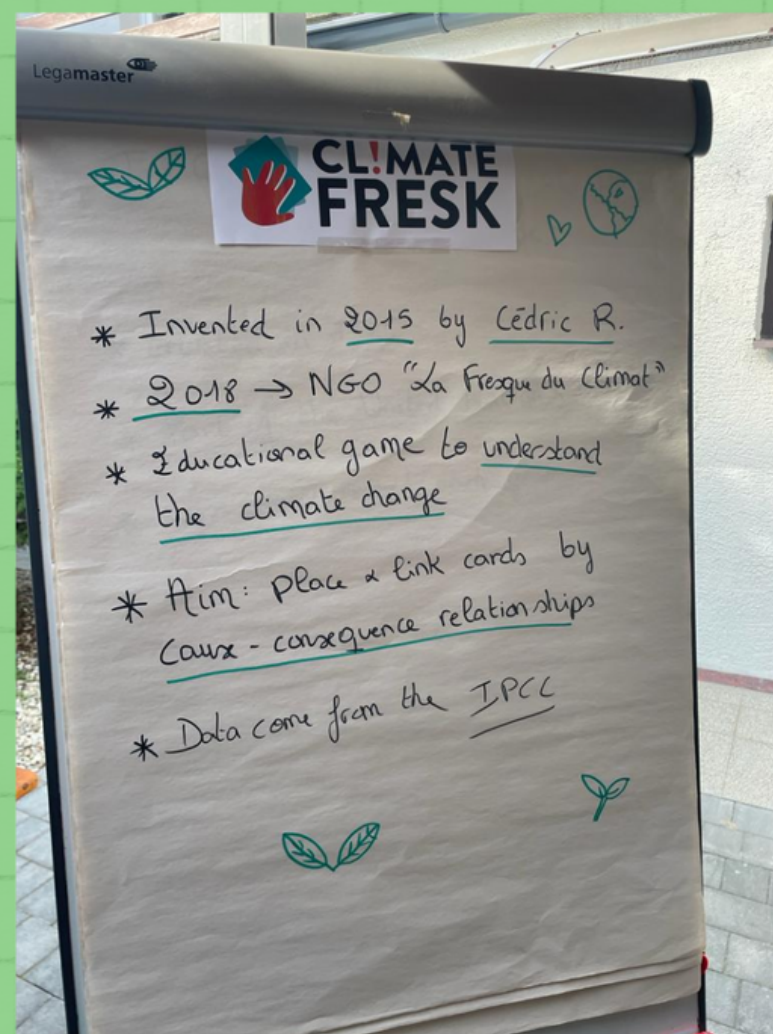 Legamaster
CL!MATE
FRESK
* Invented in 2015 by Cédric R.
* 2018 → NGO "La Fresque du Climat"
* Educational game to understand
the climate change
* Aim: place & link cards by
cause - consequence relationships
* Data come from the IPCC